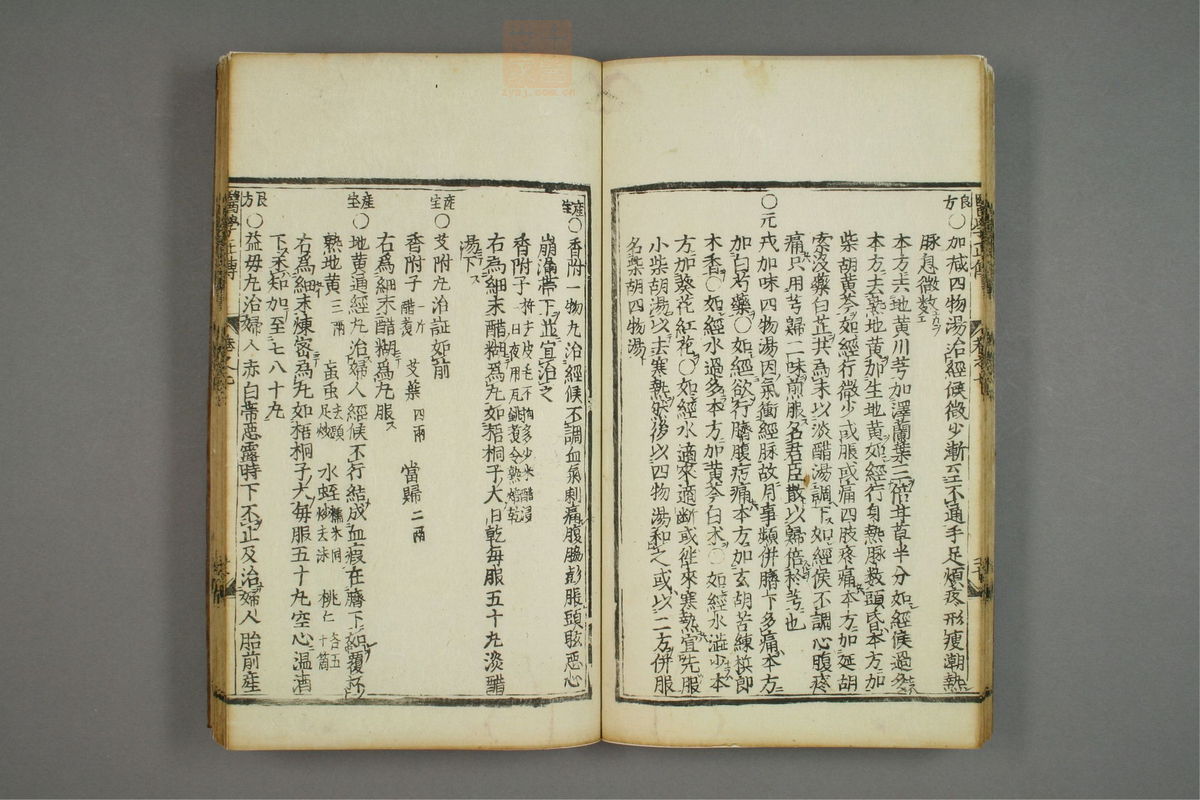 良方
○加減四物湯治經候微少漸々不通手足煩疼形瘦潮熱
脉息微數
本方去地黃川芎加澤蘭葉三倍甘草半分如經候過多
本方去熟地黃加生地黃如經行身熱脉數頭昏本方加
柴胡黃芩如經行微少或脹或痛四肢疼痛本方加延胡
索沒藥白芷共為末以淡醋湯調下如經侯不調心腹疼
痛只用芎歸二味煎服名君臣散以歸倍於芎也
○元戎加味四物湯因氣衝經脉故月事頻併臍下多痛本方
加白芍藥○如經欲行臍腹疞痛本方加玄胡苦練檳即
木香○如經水過多本方加黃芩白术○如經水澁少本
方加葵花紅花○如經水適來適断或徃來寒熱宜先服
小柴胡湯以去寒熱然後以四物湯和之或以二方併服
名柴胡四物湯
產宝
○香附一物丸治經候不調血氣刺痛腹脇彭脹頭眩惡心
崩漏帶下並宜治之
香附子 杵去皮毛不拘多少米醋浸一日夜用瓦銚煑令熟焙乾
右為細末醋糊為丸如梧桐子大日乾每服五十丸淡醋
湯下
產宝
○艾附丸治証如前
香附子 一斤醋煑 艾葉 四兩 當歸 二兩
右為細末醋糊為丸服
產宝
○地黃通經丸治婦人經候不行結成血瘕在臍下如覆杯
熟地黃 三兩 䖟虫 去頭足炒 水蛭 糯米同炒去米 桃仁 各五十箇
右為細末煉密為丸如梧桐子大每服五十丸空心温酒
下未知加至七八十丸
良方
○益毋丸治婦人赤白帶惡露時下不止及治婦人胎前産